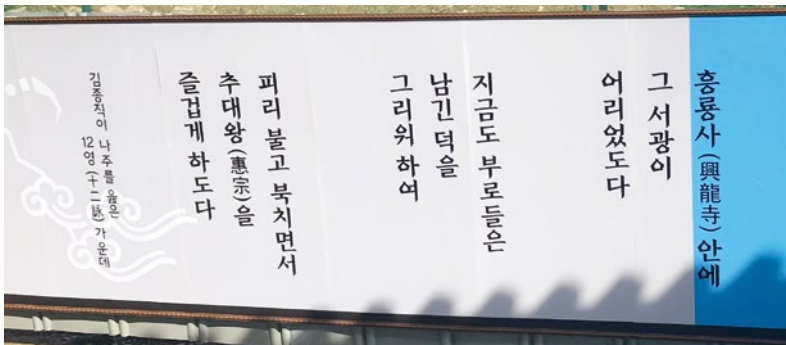 흥룡사(興龍寺)안에
그 서광이
어리었도다
지금도 부로들은
남긴 덕을
그리워 하여
피리 불고 북치면서
추대왕(惠宗)을
즐겁게 하도다
김종직이 나주를 읊은
12영(十二詠)가운데